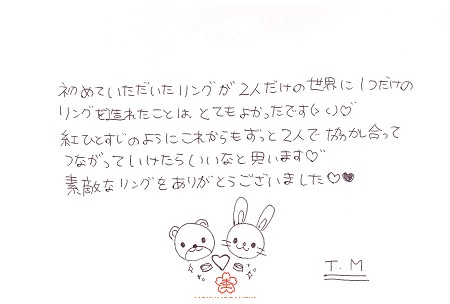 初めていただいたリングが2人だけの世界に1つだけの
リングを造れたことは、とてもよかったです(> <)♡
紅ひとすじのようにこれからもずっと2人で協力し合って
つながっていけたらいいなと思います♡
素敵なリングをありがとうございました♡♥
T.M